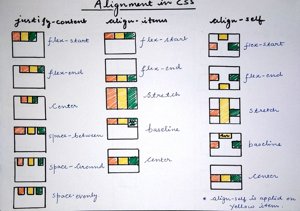 Alignment in CSS
justify-content
flex-start
flex-end
Center
space-between
space-around
space-evenly
align-items
flex-start
flex-end
Stretch
baseline
Center
align-self
flex-start
flex-end
Stretch
baseline
Center
* align-self is applied on
yellow item.